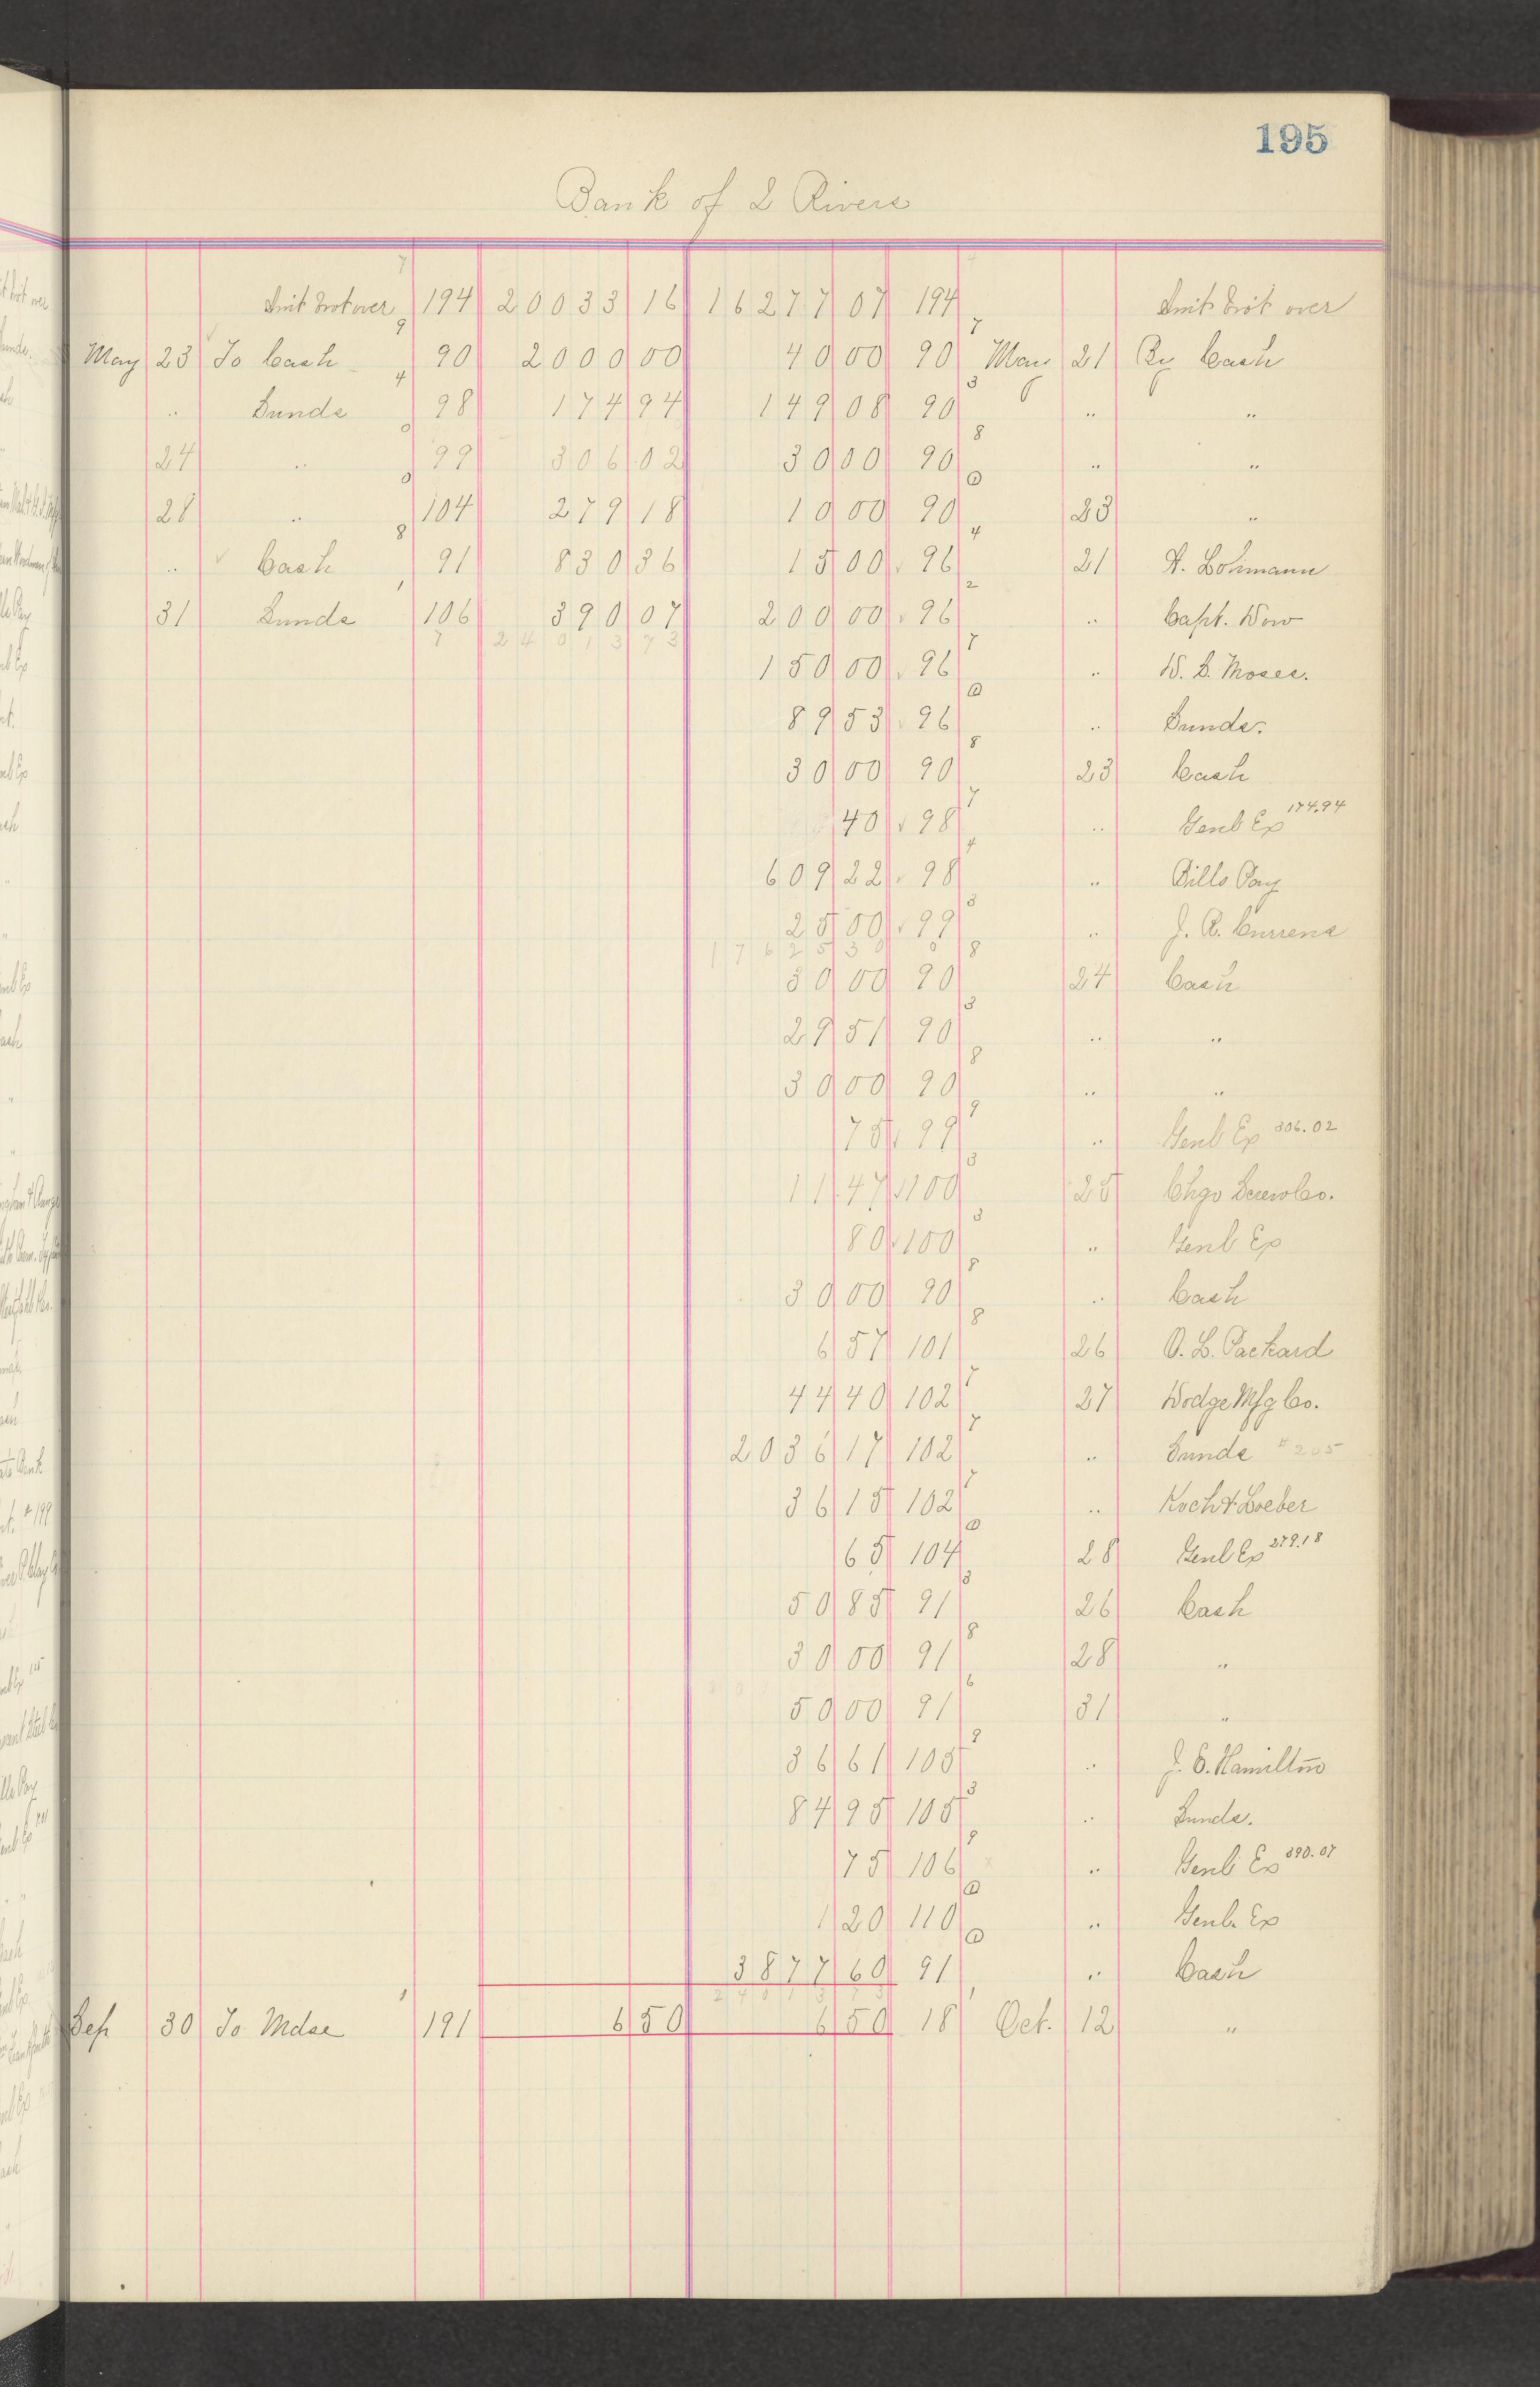 195
Bank of 2 Rivers
Amt brot over 194 20033 16 16277 07 194 Amt brot over
May 23 To Cash 90 2000 00 40 00 90 May 21 By Cash
" Sunds 98 174 94 149 08 90 " "
24 " 99 306 02 30 00 90 " "
28 " 104 279 18 10 00 90 23 "
" Cash 91 830 36 15 00 96 21 A. Lohmann
31 Sunds 106 390 07 200 00 96 " Capt. Dow
24013 73 150 00 96 " W. S. Moses.
89 53 96 " Sunds.
30 00 90 23 Cash
40 98 " Genl Ex 174.94
609 22 98 " Bills Pay
25 00 99 " J. R. Currens
17625 30
30 00 90 24 Cash
29 51 90 " "
30 00 90 " "
75 99 " Genl Ex 306.02
11 47 100 25 Chgo Screw Co.
80 100 " Genl Ex
30 00 90 " Cash
6 57 101 26 O. L. Packard
44 40 102 27 Dodge Mfg Co.
2036 17 102 " Sunds # 205
36 15 102 " Koch & Loeber
65 104 28 Genl Ex 279.18
50 85 91 26 Cash
30 00 91 28 "
50 00 91 31 "
36 61 105 " J. E. Hamilton
84 95 105 " Sunds.
75 106 " Genl Ex 390.07
1 20 110 " Genl Ex
3877 60 91 " Cash
24013 73
Sep 30 To Mdse 191 6 50 6 50 18 Oct. 12 "